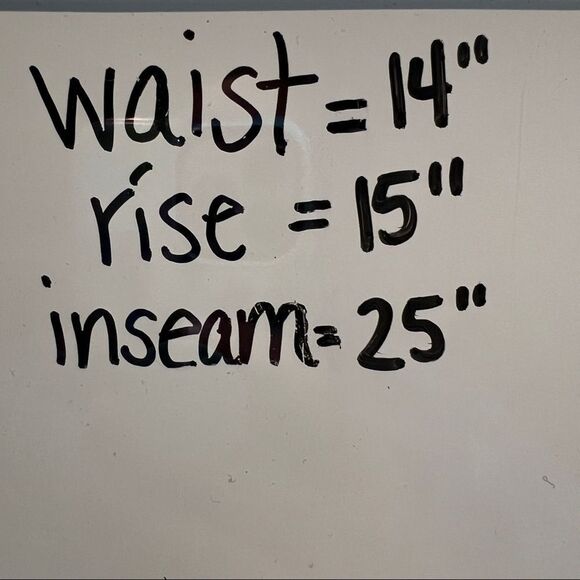 waist = 14"
rise = 15"
inseam = 25"